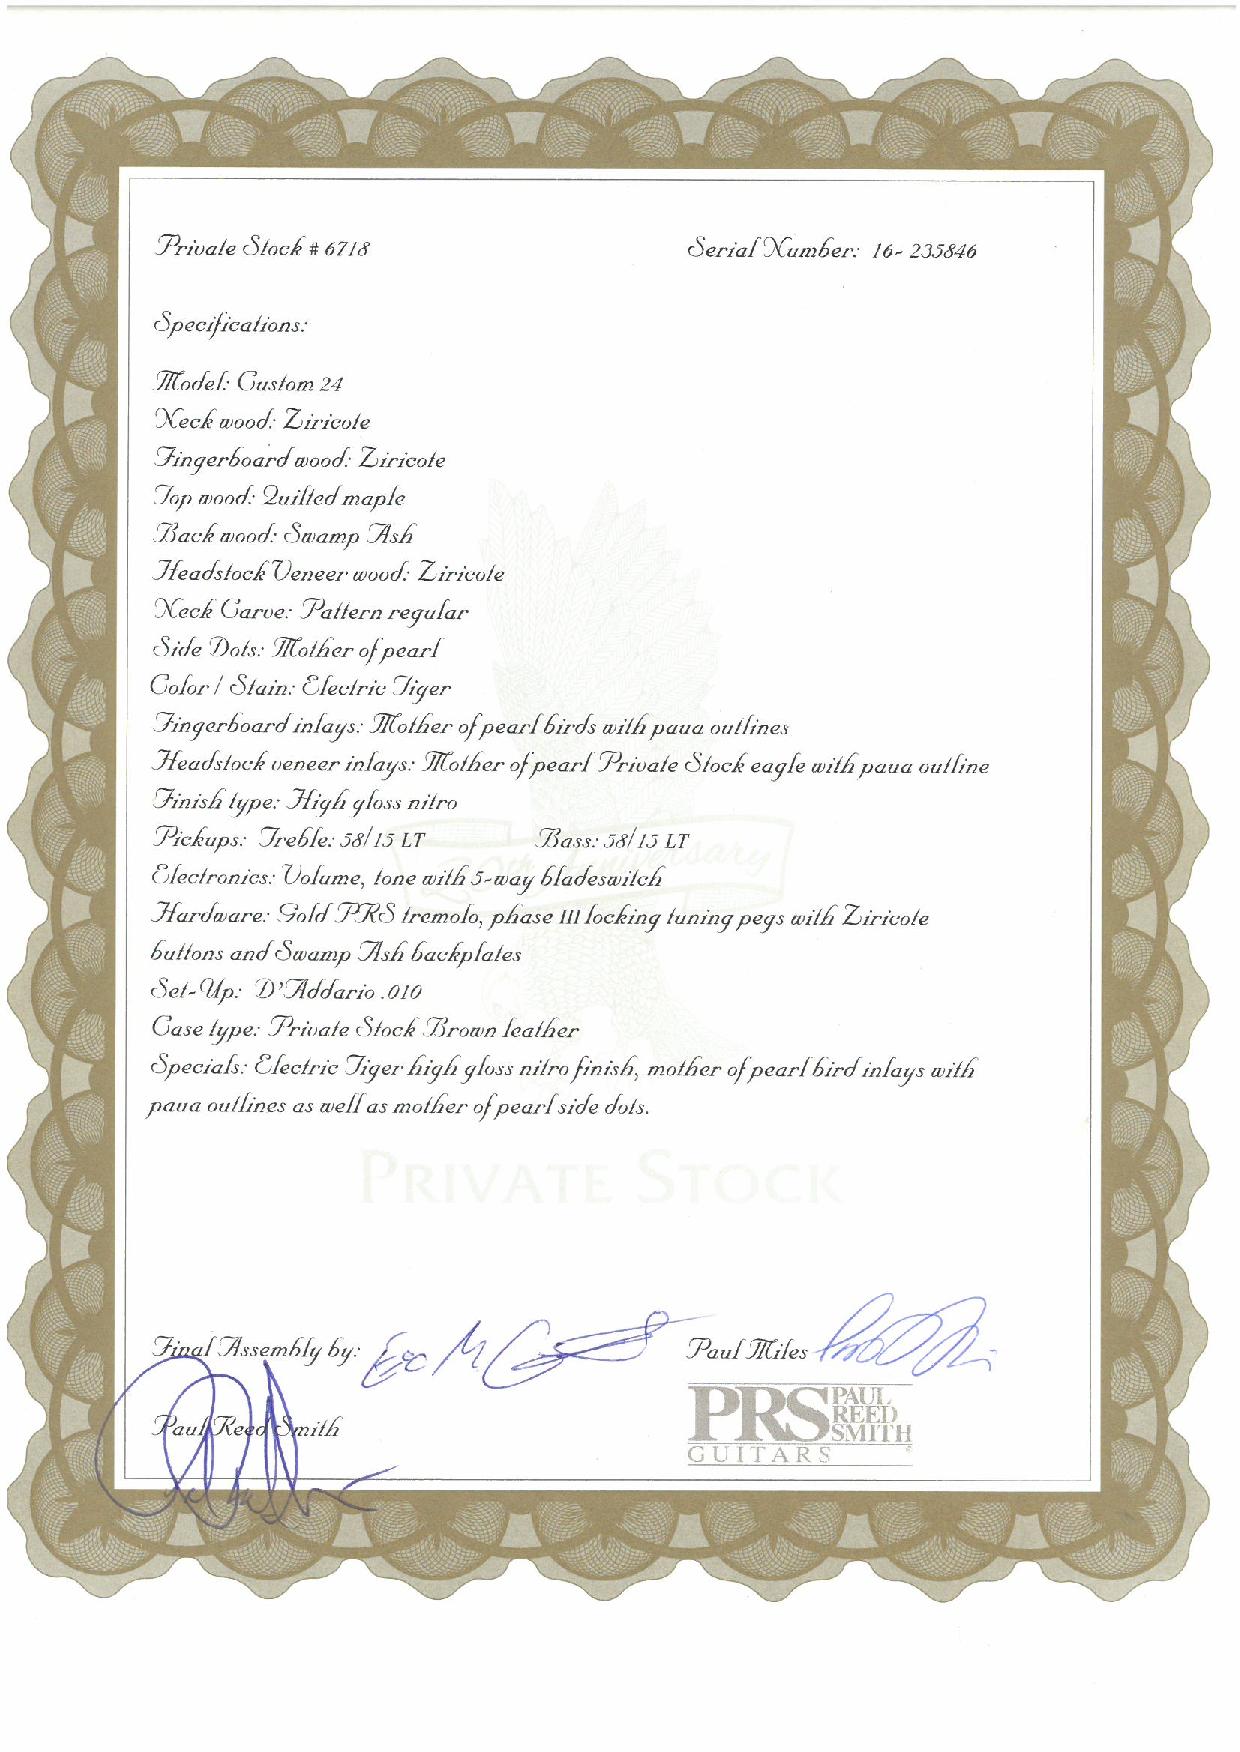 Private Stock # 6718 Serial Number: 16- 235846
Specifications:
Model: Custom 24
Neck wood: Ziricote
Fingerboard wood: Ziricote
Top wood: Quilted maple
Back wood: Swamp Ash
Headstock Veneer wood: Ziricote
Neck Carve: Pattern regular
Side Dots: Mother of pearl
Color / Stain: Electric Tiger
Fingerboard inlays: Mother of pearl birds with paua outlines
Headstock veneer inlays: Mother of pearl Private Stock eagle with paua outline
Finish type: High gloss nitro
Pickups: Treble: 58/15 LT Bass: 58/15 LT
20th Anniversary
Electronics: Volume, tone with 5-way bladeswitch
Hardware: Gold PRS tremolo, phase III locking tuning pegs with Ziricote
buttons and Swamp Ash backplates
Set-Up: D'Addario .010
Case type: Private Stock Brown leather
Specials: Electric Tiger high gloss nitro finish, mother of pearl bird inlays with
paua outlines as well as mother of pearl side dots.
PRIVATE STOCK
Final Assembly by: Paul Miles
Paul Reed Smith
PRS PAUL REED SMITH
GUITARS